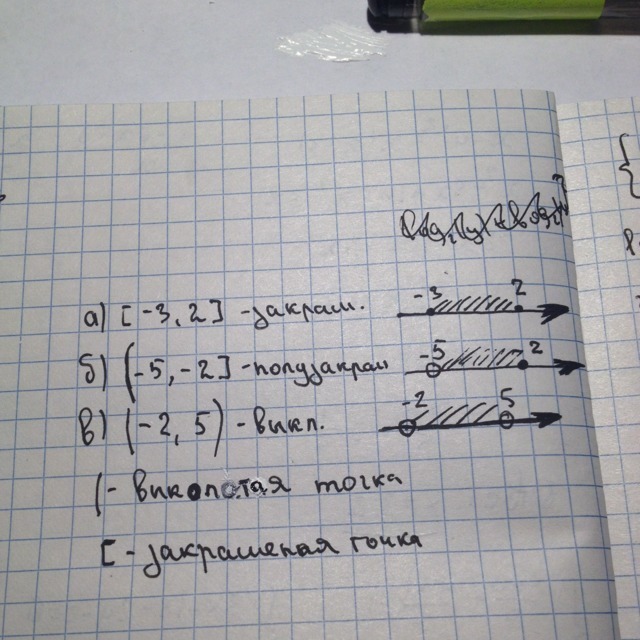 а) [-3, 2] - закраш. -3 2
б) (-5, -2] - полузакраш -5 2
в) (-2, 5) - выкл. -2 5
(- выколотая точка
[ - закрашеная точка